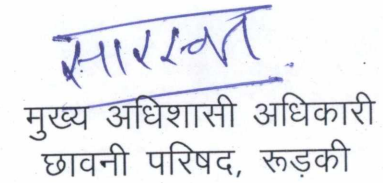 सारस्वत
मुख्य अधिशासी अधिकारी
छावनी परिषद, रूड़की